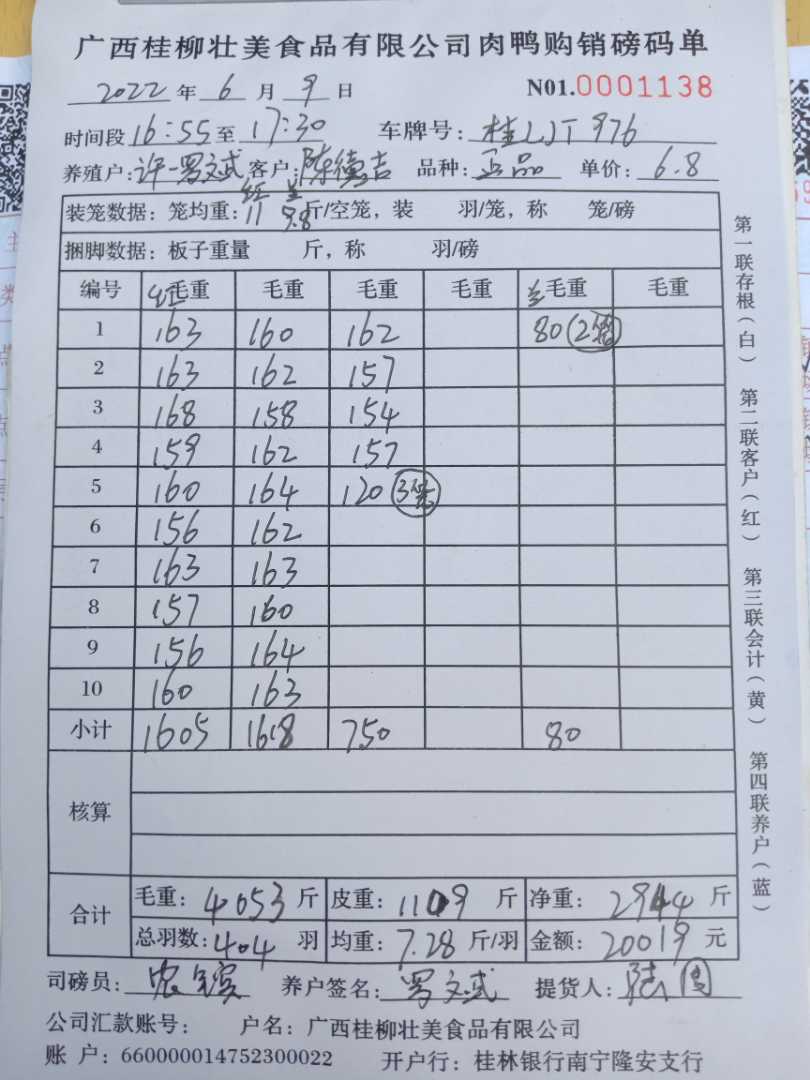 广西桂柳壮美食品有限公司肉鸭购销磅码单
2022 年 6 月 9 日 N01.0001138
时间段 16:55 至 17:30 车牌号: 桂LJT976
养殖户: 许一罗文武 客户: 陈德吉 品种: 正品 单价: 6.8
红 兰
装笼数据: 笼均重: 11 9.8 斤/空笼, 装 羽/笼, 称 笼/磅
捆脚数据: 板子重量 斤, 称 羽/磅
编号 红毛重 毛重 毛重 毛重 兰毛重 毛重
1 163 160 162 80 (2笼)
2 163 162 157
3 168 158 154
4 159 162 157
5 160 164 120 (3笼)
6 156 162
7 163 163
8 157 160
9 156 164
10 160 163
小计 1605 1618 750 80
核算
合计 毛重: 4053 斤 皮重: 1109 斤 净重: 2944 斤
总羽数: 404 羽 均重: 7.28 斤/羽 金额: 20019 元
司磅员: 养户签名: 罗文武 提货人:
公司汇款账号: 户名: 广西桂柳壮美食品有限公司
账 户: 660000014752300022 开户行: 桂林银行南宁隆安支行
第一联存根(白) 第二联客户(红) 第三联会计(黄) 第四联养户(蓝)